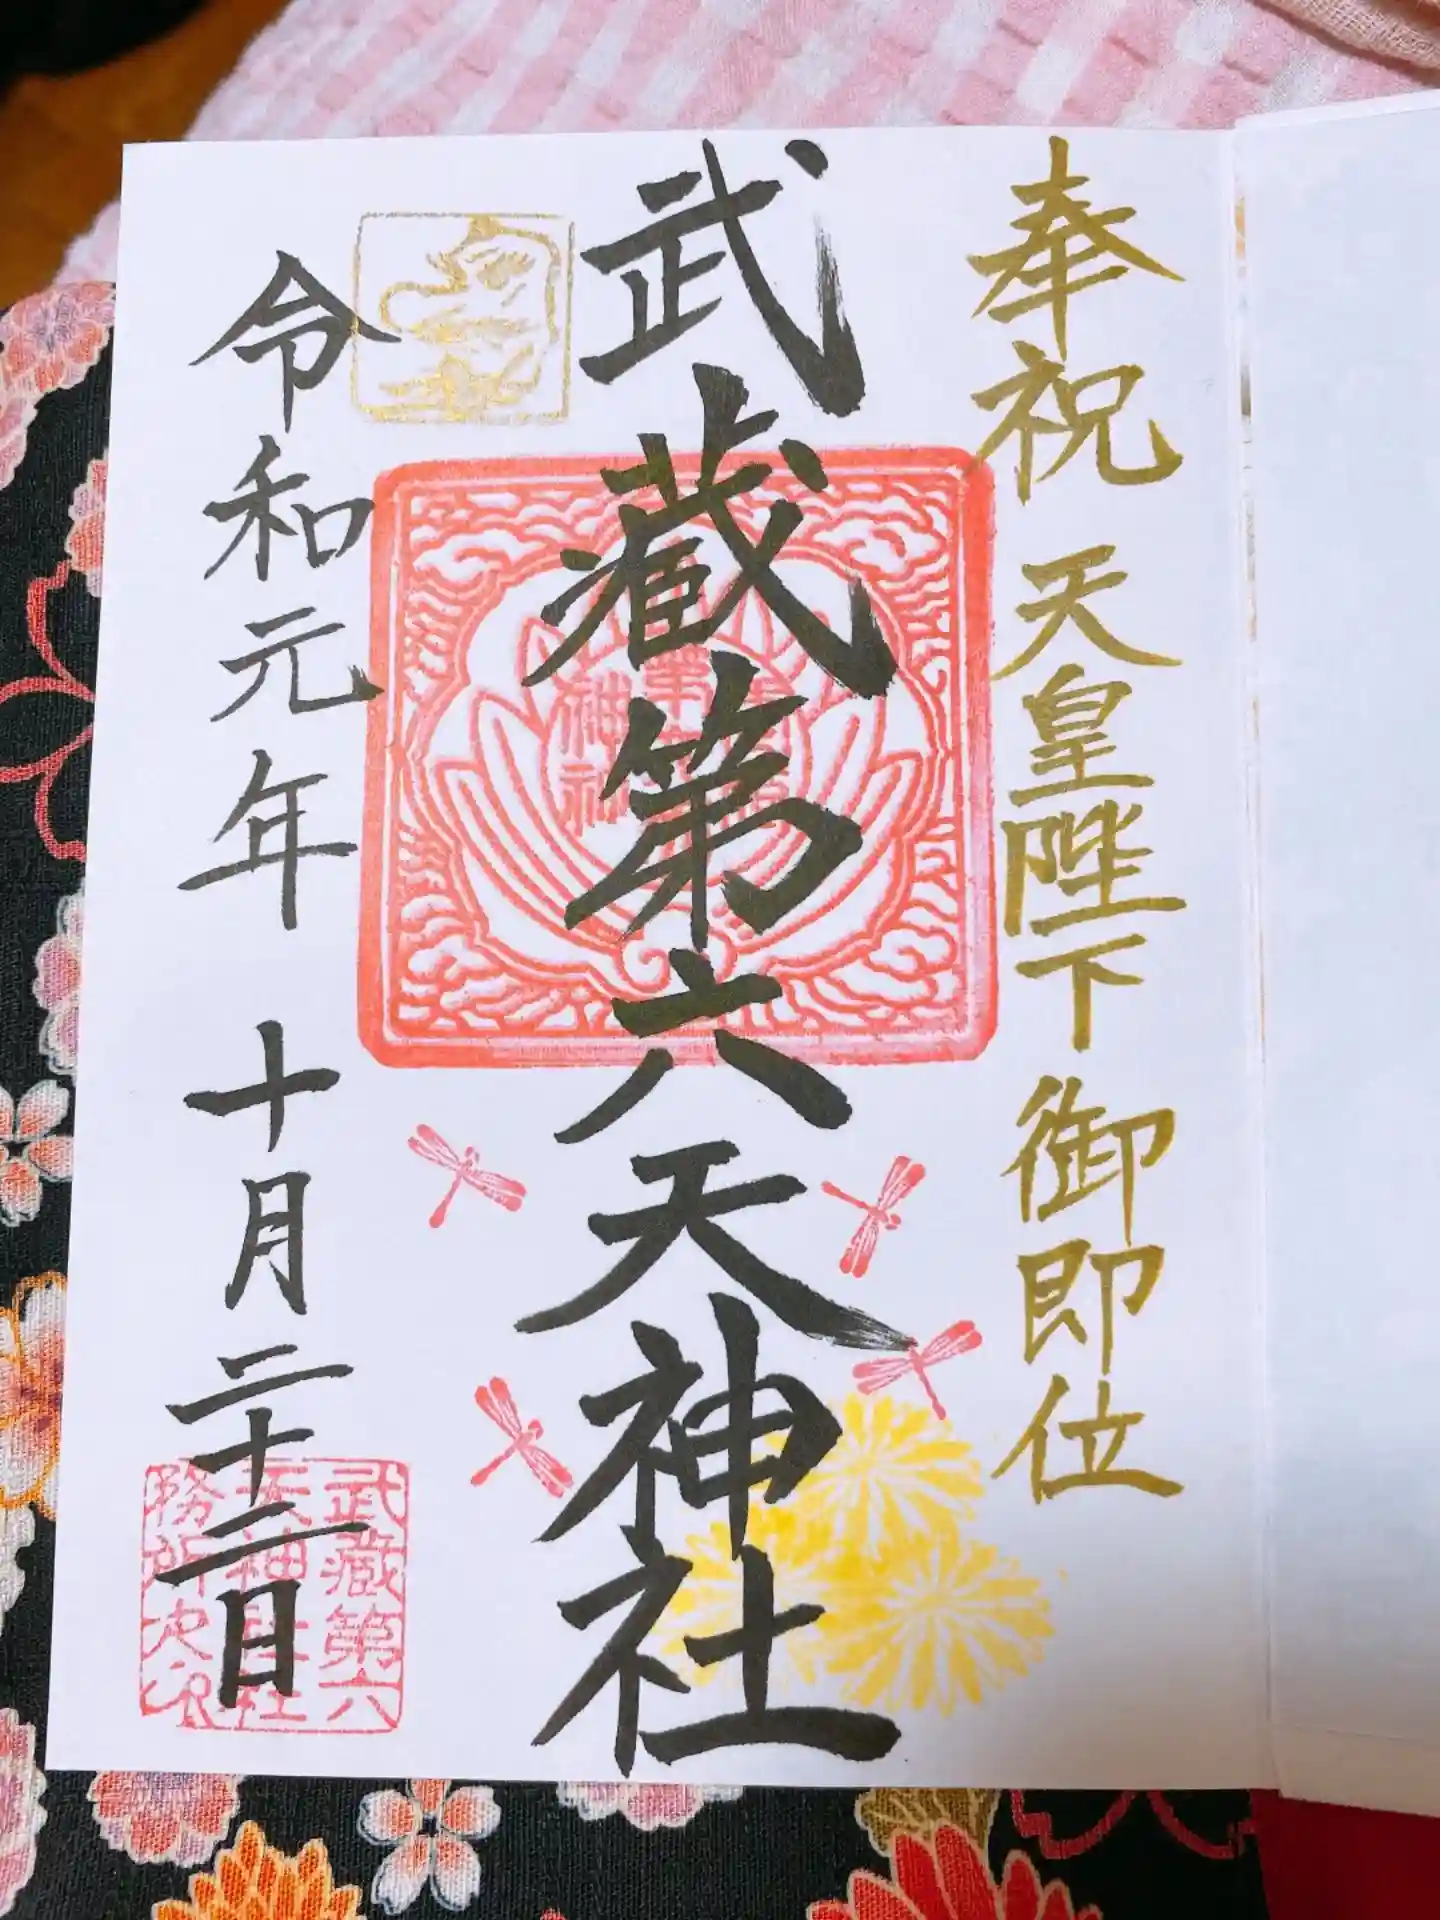 奉祝 天皇陛下 御即位
武蔵第六天神社
令和元年 十月二十二日
武蔵第六
天神社社
務所之印